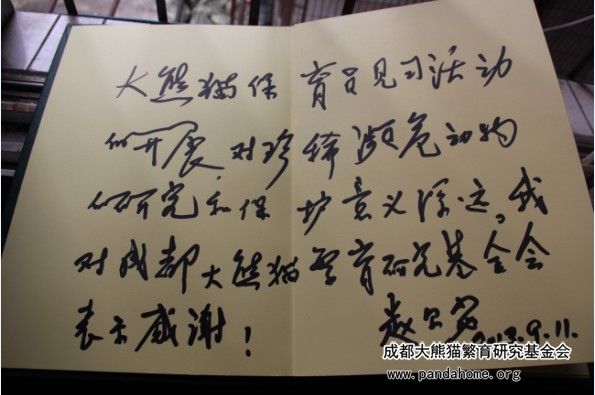 大熊猫保育员见习活动
的开展,对珍稀濒危动物
的研究和保护意义深远,我
对成都大熊猫繁育研究基金会
表示感谢!
赵 9.11.
成都大熊猫繁育研究基金会
www.pandahome.org